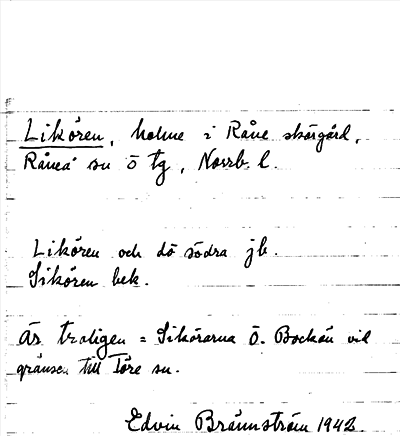 Likören, holme i Råne skärgård,
Råneå sn Ö tg, Norrb. l.
Likören och dö södra jb.
Sikören bek.
Är troligen = Sikörarna Ö. Bockön vid
gränsen till Töre sn.
Edvin Brännström 1942.